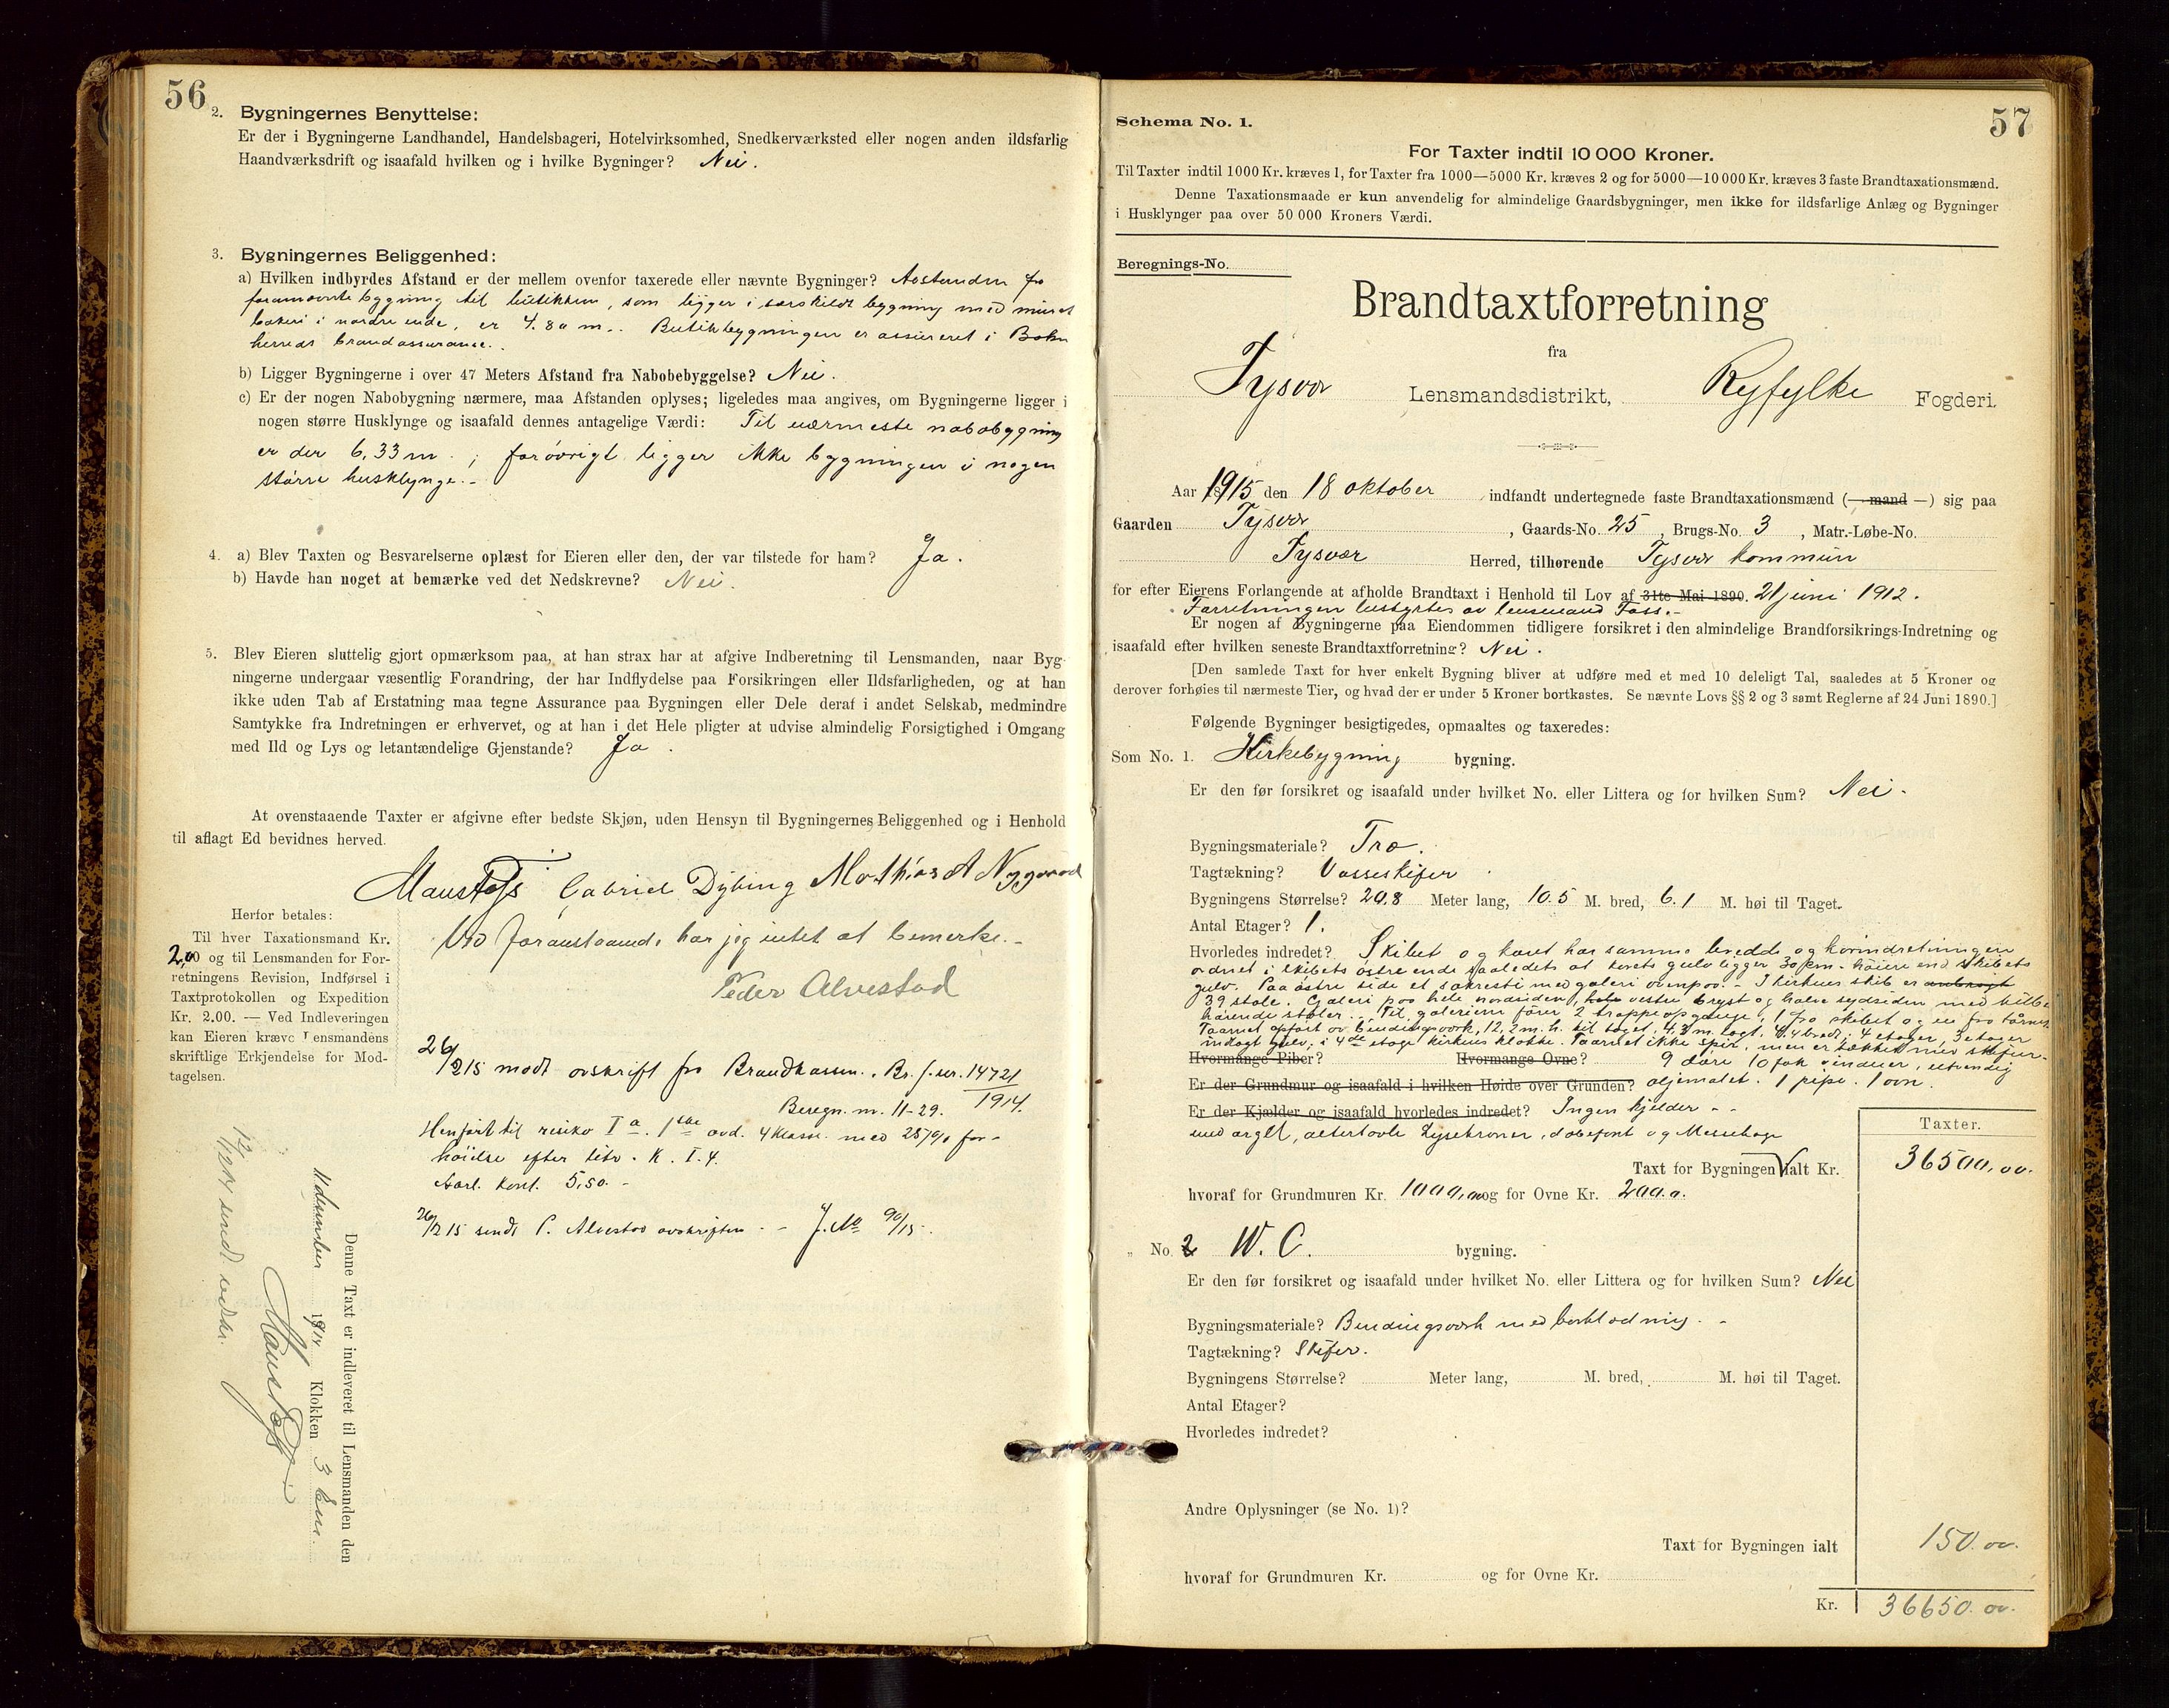 56
2. Bygningernes Benyttelse:
Er der i Bygningerne Landhandel, Handelsbageri, Hotelvirksomhed, Snedkerværksted eller nogen anden ildsfarlig
Haandværksdrift og isaafald hvilken og i hvilke Bygninger? Nei.
3. Bygningernes Beliggenhed:
a) Hvilken indbyrdes Afstand er der mellem ovenfor taxerede eller nævnte Bygninger? Avstanden fra
forannævnte bygning til butikken, som ligger i særskildt bygning med muret
bakeri i nordre ende, er 4.80 m.. Butikbygningen er assureret i Bokn
herreds brandassurance.
b) Ligger Bygningerne i over 47 Meters Afstand fra Nabobebyggelse? Nei.
c) Er der nogen Nabobygning nærmere, maa Afstanden oplyses; ligeledes maa angives, om Bygningerne ligger i
nogen større Husklynge og isaafald dennes antagelige Værdi: Til nærmeste nabobygning
er der 6,33 m.; forøvrigt ligger ikke bygningen i nogen
større husklynge.-
4. a) Blev Taxten og Besvarelserne oplæst for Eieren eller den, der var tilstede for ham? Ja.
b) Havde han noget at bemærke ved det Nedskrevne? Nei.
5. Blev Eieren sluttelig gjort opmærksom paa, at han strax har at afgive Indberetning til Lensmanden, naar Byg-
ningerne undergaar væsentlig Forandring, der har Indflydelse paa Forsikringen eller Ildsfarligheden, og at han
ikke uden Tab af Erstatning maa tegne Assurance paa Bygningen eller Dele deraf i andet Selskab, medmindre
Samtykke fra Indretningen er erhvervet, og at han i det Hele pligter at udvise almindelig Forsigtighed i Omgang
med Ild og Lys og letantændelige Gjenstande? Ja.
At ovenstaaende Taxter er afgivne efter bedste Skjøn, uden Hensyn til Bygningernes Beliggenhed og i Henhold
til aflagt Ed bevidnes herved.
Gabriel Dybing Mathias A Nygaard
Herfor betales:
Til hver Taxationsmand Kr.
2,00 og til Lensmanden for For-
retningens Revision, Indførsel i
Taxtprotokollen og Expedition
Kr. 2.00. — Ved Indleveringen
kan Eieren kræve Lensmandens
skriftlige Erkjendelse for Mod-
tagelsen.
Ved foranstaaende har jeg intet at bemerke.-
Peder Alvestad
26/2 15 modt avskrift fra Brandkassen. Br. f. nr. 14721/1914.
Beregn. nr. 11-29.
Henført til risiko I a. 1ste avd. 4 klasse med 25% for-
høielse efter litr. K. I. 4.
Aarl. kont. 5,50.-
26/2 15 sendt P. Alvestad avskriften - J. No 90/15.
Denne Taxt er indleveret til Lensmanden den
11 december 1914 Klokken 3 em.
12/12 14 sendt
57
Schema No. 1.
For Taxter indtil 10 000 Kroner.
Til Taxter indtil 1000 Kr. kræves 1, for Taxter fra 1000—5000 Kr. kræves 2 og for 5000—10 000 Kr. kræves 3 faste Brandtaxationsmænd.
Denne Taxationsmaade er kun anvendelig for almindelige Gaardsbygninger, men ikke for ildsfarlige Anlæg og Bygninger
i Husklynger paa over 50 000 Kroners Værdi.
Beregnings-No.
Brandtaxtforretning
fra
Tysvær Lensmandsdistrikt, Ryfylke Fogderi.
Aar 1915 den 18 oktober indfandt undertegnede faste Brandtaxationsmænd (— mand —) sig paa
Gaarden Tysvær, Gaards-No. 25, Brugs-No. 3, Matr.-Løbe-No.
Tysvær Herred, tilhørende Tysvær kommun
for efter Eierens Forlangende at afholde Brandtaxt i Henhold til Lov af 31te Mai 1890. 21 juni 1912.
Forretningen bestyrtes av lensmand Tøss.-
Er nogen af Bygningerne paa Eiendommen tidligere forsikret i den almindelige Brandforsikrings-Indretning og
isaafald efter hvilken seneste Brandtaxtforretning? Nei.
[Den samlede Taxt for hver enkelt Bygning bliver at udføre med et med 10 deleligt Tal, saaledes at 5 Kroner og
derover forhøies til nærmeste Tier, og hvad der er under 5 Kroner bortkastes. Se nævnte Lovs §§ 2 og 3 samt Reglerne af 24 Juni 1890.]
Følgende Bygninger besigtigedes, opmaaltes og taxeredes:
Som No. 1. Kirkebygning bygning.
Er den før forsikret og isaafald under hvilket No. eller Littera og for hvilken Sum? Nei.
Bygningsmateriale? Træ.
Tagtækning? Vosseskifer
Bygningens Størrelse? 20.8 Meter lang, 10.5 M. bred, 6.1 M. høi til Taget.
Antal Etager? 1.
Hvorledes indredet? Skibet og koret har samme bredde og korindretningen
ordnet i skibets østre ende saaledets at korets gulv ligger 30 cm. høiere end skibets
gulv. Paa østre side et sakresti med galeri ovenpaa.- I kirkens skib er anbragt
39 stole. Galeri paa hele nordsiden, hele vestre bryst og halve sydsiden med tilbe-
hørende stoler.. Til galerierne fører 2 trappeopgange, 1 fra skibet og en fra tårnet.
Taarnet opført av bindingsverk, 12,2 m. h. til taget, 4.3 m. lagt, 4.4 bredt, 4 etager, 3 etager
indlagt gulv; i 4de etage kirkens klokke. Taarnet ikke spir, men er tækket med skifer.
Hvormange Piber? Hvormange Ovne? 9 døre 10 fak vinduer, utvendig
Er der Grundmur og isaafald i hvilken Høide over Grunden? oljemalet. 1 pipe. 1 ovn.
Er der Kjælder og isaafald hvorledes indredet? Ingen kjelder - -
med orgel, altertavle Lysekroner, døbefont og Messehage
Taxter.
Taxt for Bygningen ialt Kr. 36500,00.
hvoraf for Grundmuren Kr. 1000,00 og for Ovne Kr. 200.0.
" No. 2 W. C. bygning.
Er den før forsikret og isaafald under hvilket No. eller Littera og for hvilken Sum? Nei
Bygningsmateriale? Bindingsverk med bordklædning. -
Tagtækning? Skifer.
Bygningens Størrelse? Meter lang, M. bred, M. høi til Taget.
Antal Etager?
Hvorledes indredet?
Andre Oplysninger (se No. 1)?
Taxt for Bygningen ialt 150.00.
hvoraf for Grundmuren Kr. og for Ovne Kr.
Kr. 36650.00.